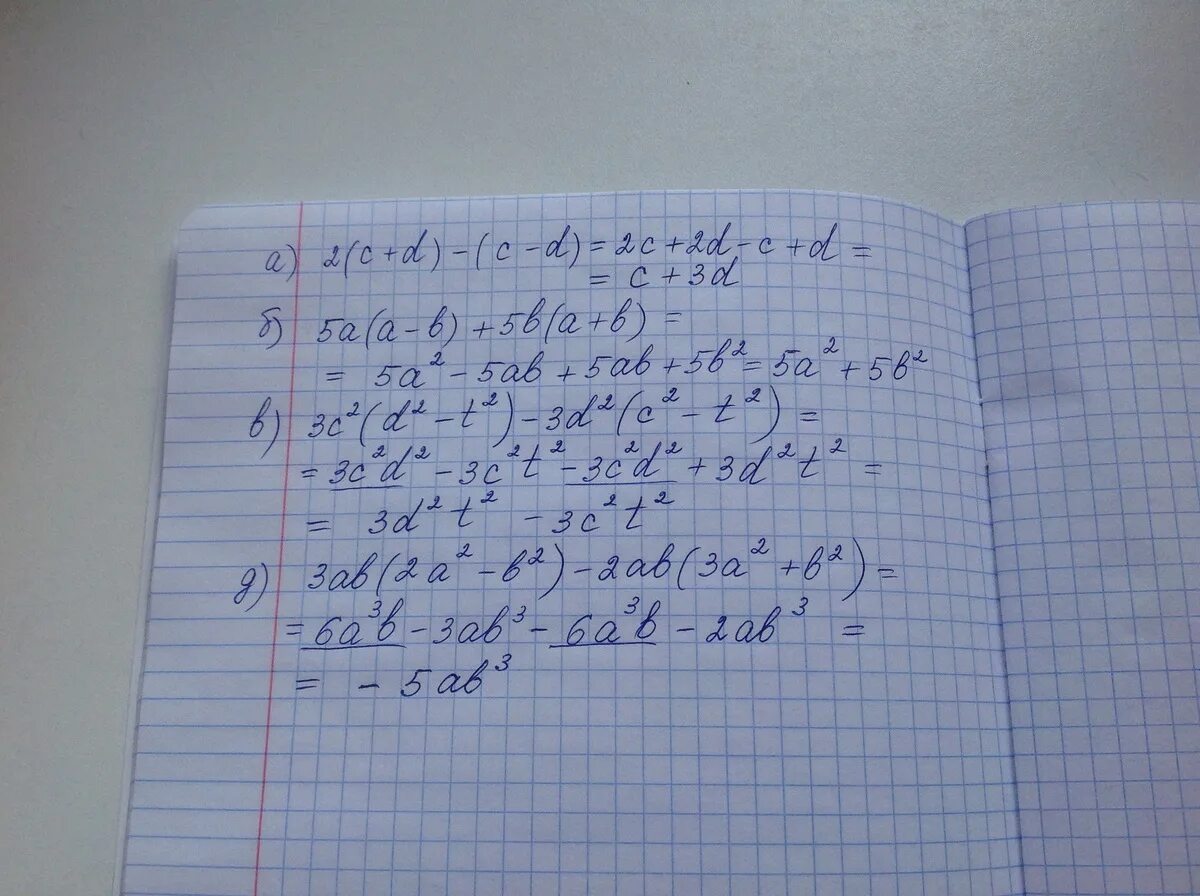 а) 2(c+d)-(c-d)=2c+2d-c+d=
=c+3d
б) 5a(a-b)+5b(a+b)=
= 5a²-5ab+5ab+5b²=5a²+5b²
в) 3c²(d²-t²)-3d²(c²-t²)=
=3c²d²-3c²t²-3c²d²+3d²t²=
= 3d²t²-3c²t²
д) 3ab(2a²-b²)-2ab(3a²+b²)=
=6a³b-3ab³-6a³b-2ab³=
= -5ab³